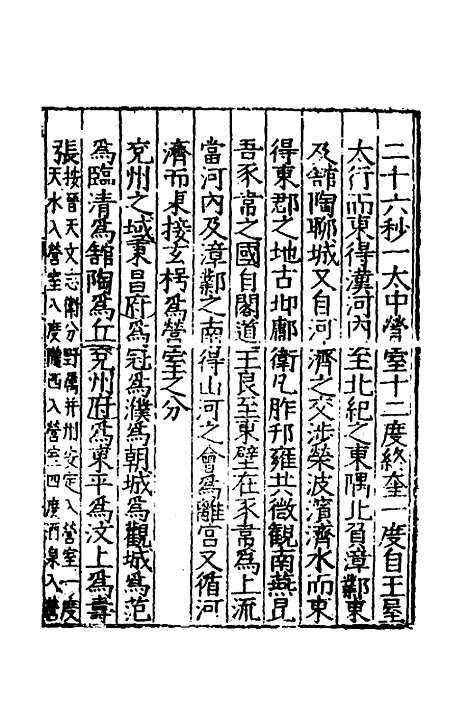 二十六秒一太中營室十二度終奎一度自王屋
太行而東得漢河內至北紀之東隅北負漳鄴東
及館陶聊城又自河濟之交涉滎波濱濟水而東
得東郡之地古邶鄘衛凡胙邘雍共微觀南燕昆
吾豕韋之國自閣道王良至東壁在豕韋為上流
當河內及漳鄴之南得山河之會為離宮又循河
濟而東接玄枵為營室之分
兖州之域東昌府為冠為濮為朝城為觀城為范
為臨清為館陶為丘兖州府為東平為汶上為壽
張按晉天文志衛分野属并州安定入營室一度
天水入營室八度隴西入營室四度酒泉入營